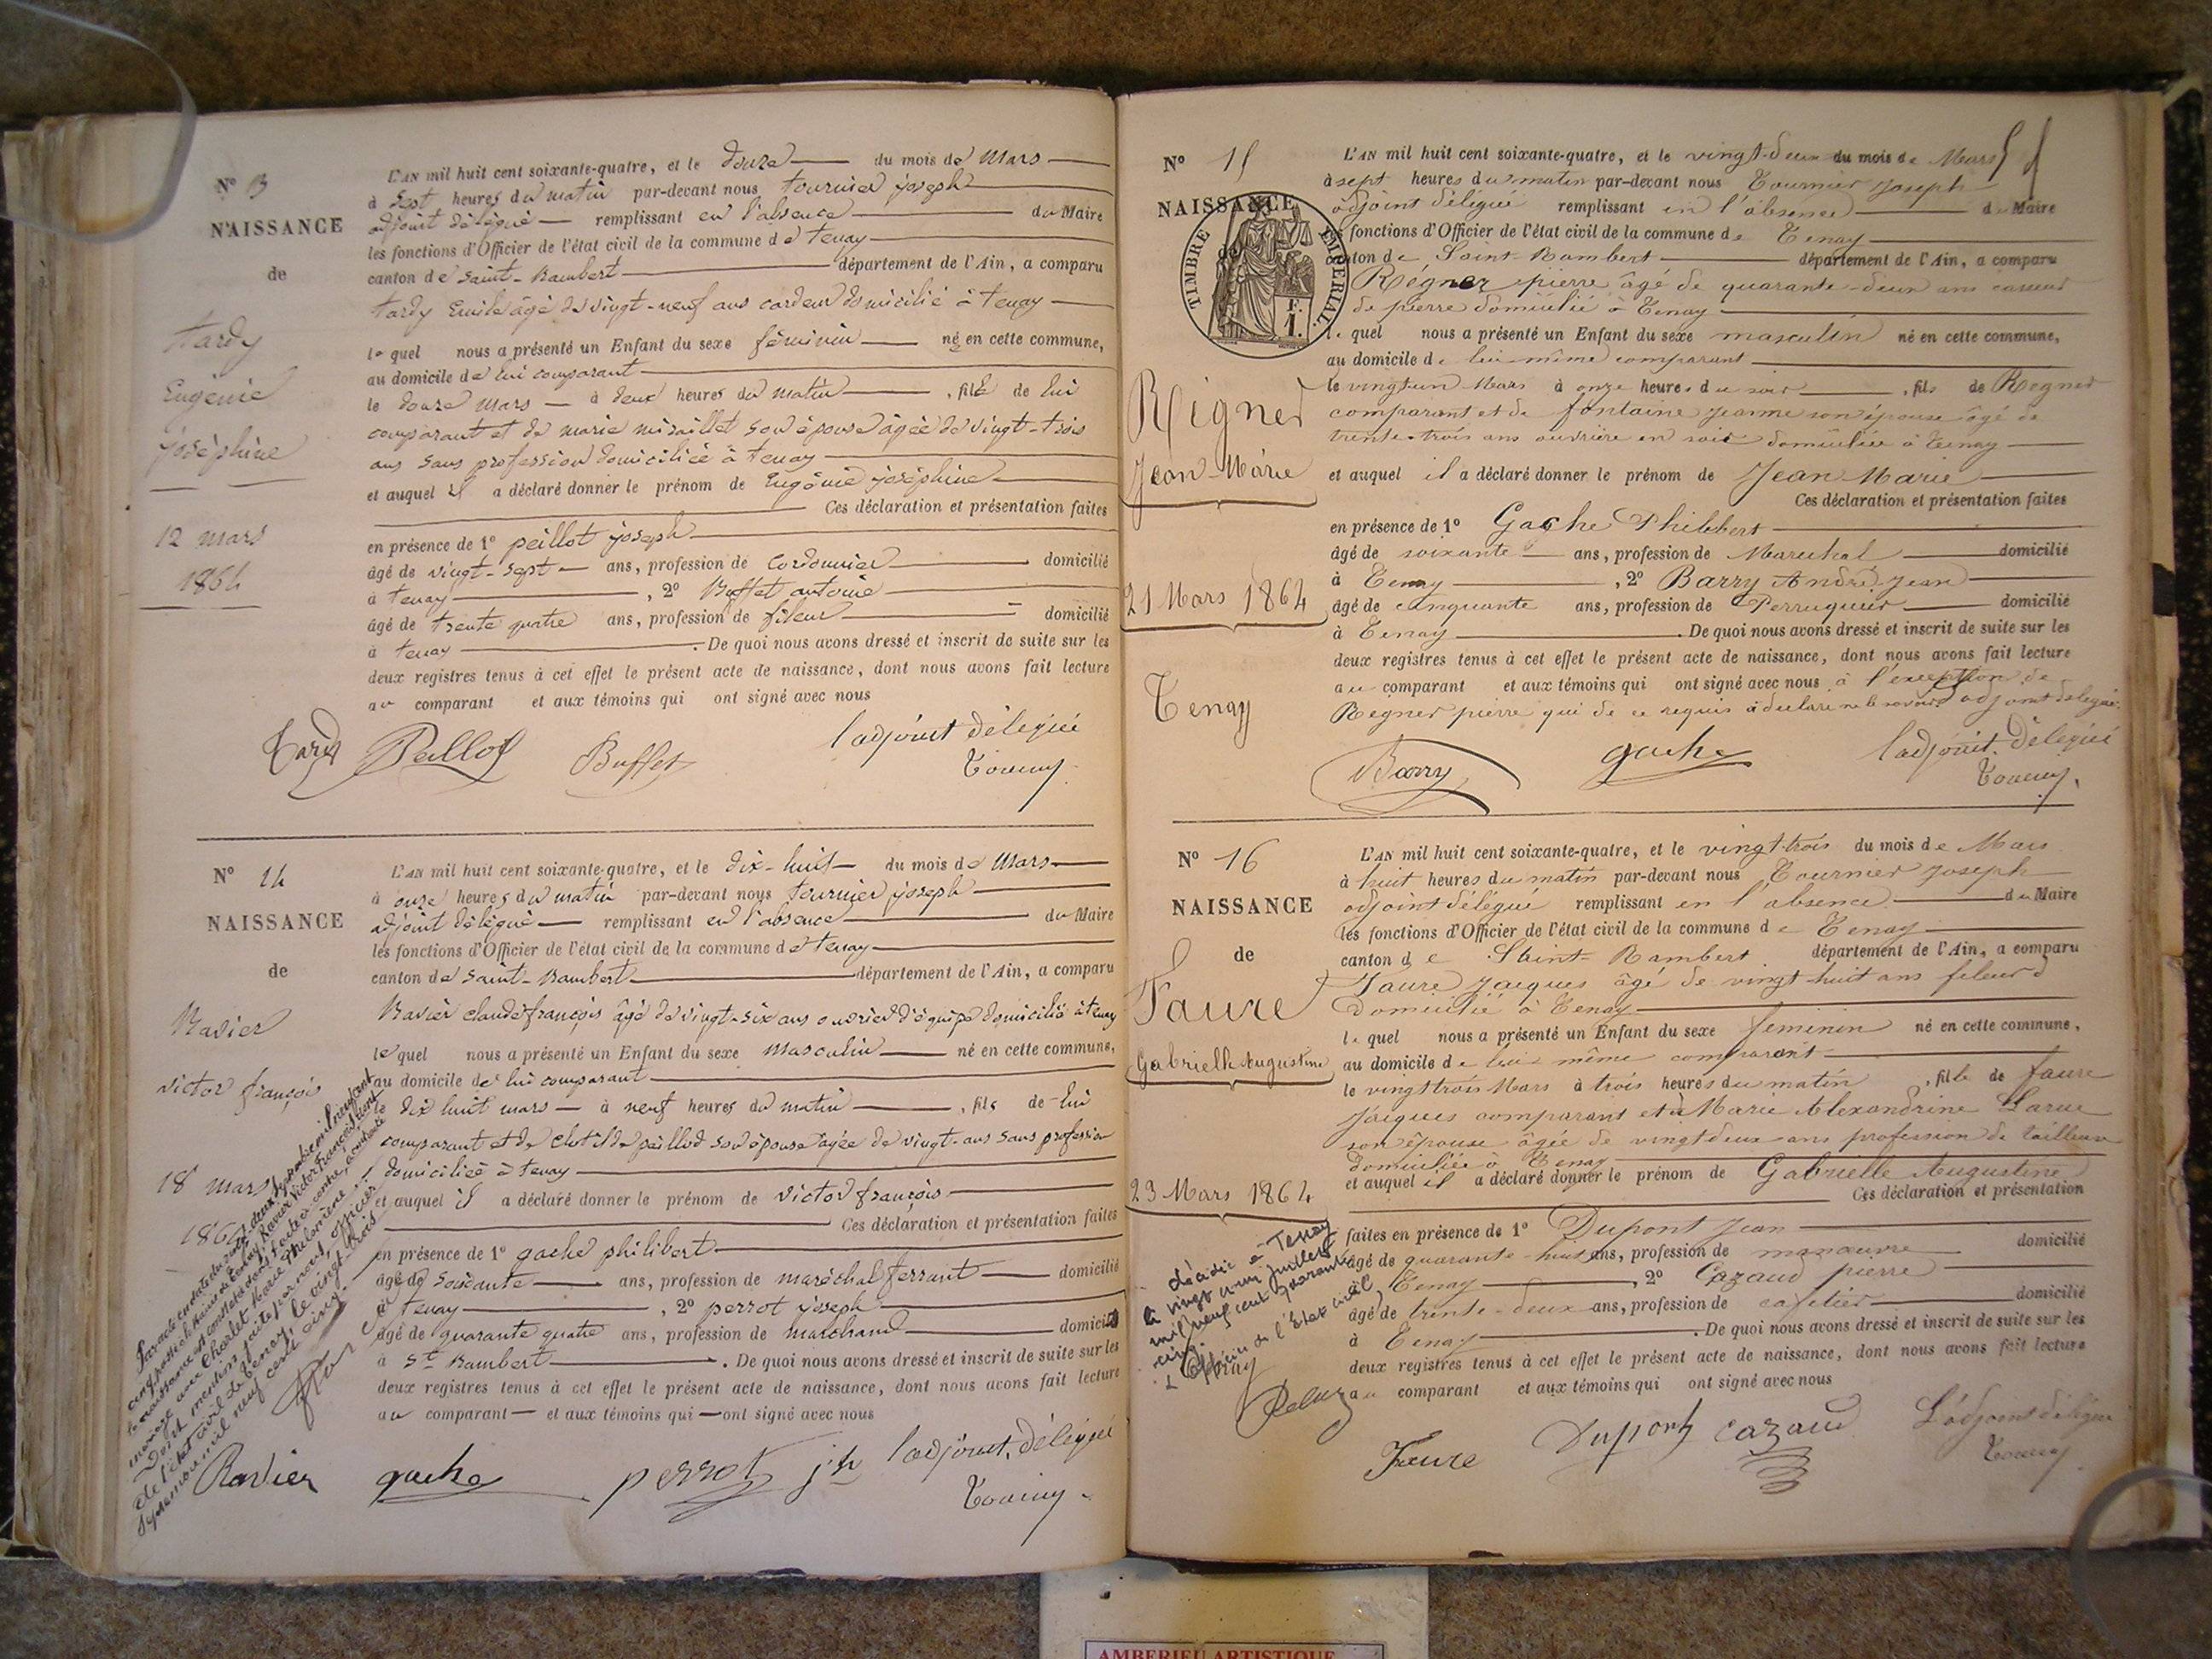 N° 13
NAISSANCE
de
tardy
Eugénie
joséphine
12 mars
1864
L'AN mil huit cent soixante-quatre, et le douze du mois de Mars
à Sept heures du matin par-devant nous tournier joseph
adjoint délégué remplissant en l'absence du Maire
les fonctions d'Officier de l'état civil de la commune de tenay
canton de Saint-Rambert département de l'Ain, a comparu
tardy Emile âgé de vingt-neuf ans cardeur domicilié à tenay
lequel nous a présenté un Enfant du sexe féminin née en cette commune,
au domicile de lui comparant
le douze mars à deux heures du matin, fille de lui
comparant et de marie miraillet son épouse âgée de vingt-trois
ans sans profession domiciliée à tenay
et auquel il a déclaré donner le prénom de Eugénie joséphine
Ces déclaration et présentation faites
en présence de 1° peillot joseph
âgé de vingt-sept ans, profession de Cordonnier domicilié
à tenay, 2° Buffet antoine
âgé de trente quatre ans, profession de fileur domicilié
à tenay. De quoi nous avons dressé et inscrit de suite sur les
deux registres tenus à cet effet le présent acte de naissance, dont nous avons fait lecture
au comparant et aux témoins qui ont signé avec nous
Tardy Peillot Buffet l'adjoint délégué
N° 14
NAISSANCE
de
Ravier
victor françois
18 mars
1864
L'AN mil huit cent soixante-quatre, et le dix-huit du mois de Mars
à onze heures du matin par-devant nous tournier joseph
adjoint délégué remplissant en l'absence du Maire
les fonctions d'Officier de l'état civil de la commune de tenay
canton de Saint-Rambert département de l'Ain, a comparu
Ravier claude françois âgé de vingt-six ans ouvrier d'équipe domicilié à tenay
lequel nous a présenté un Enfant du sexe Masculin né en cette commune,
au domicile de lui comparant
le dix huit mars à neuf heures du matin, fils de lui
comparant et de clotilde peillod son épouse âgée de vingt-ans sans profession
domiciliée à tenay
et auquel il a déclaré donner le prénom de victor françois
Ces déclaration et présentation faites
en présence de 1° gache philibert
âgé de soixante ans, profession de maréchal ferrant domicilié
à tenay, 2° perrot joseph
âgé de quarante quatre ans, profession de marchand domicilié
à St Rambert. De quoi nous avons dressé et inscrit de suite sur les
deux registres tenus à cet effet le présent acte de naissance, dont nous avons fait lecture
au comparant et aux témoins qui ont signé avec nous
Ravier gache perrot jh l'adjoint délégué
N° 15
NAISSANCE
de
TIMBRE IMPERIAL
F.
1.
Reigner
Jean-Marie
21 Mars 1864
Tenay
L'AN mil huit cent soixante-quatre, et le vingt-deux du mois de Mars
à sept heures du matin par-devant nous Tournier Joseph
adjoint délégué remplissant en l'absence du Maire
fonctions d'Officier de l'état civil de la commune de Tenay
canton de Saint-Rambert département de l'Ain, a comparu
Régner pierre âgé de quarante-deux ans casseur
de pierre domicilié à Tenay
lequel nous a présenté un Enfant du sexe masculin né en cette commune,
au domicile de lui-même comparant
le vingt un Mars à onze heures du soir, fils de Regner
comparant et de fontaine Jeanne son épouse âgé de
trente-trois ans ouvrière en soie domiciliée à Tenay
et auquel il a déclaré donner le prénom de Jean Marie
Ces déclaration et présentation faites
en présence de 1° Gache Philibert
âgé de soixante ans, profession de Marechal domicilié
à Tenay, 2° Barry André-Jean
âgé de cinquante ans, profession de Perruquier domicilié
à Tenay. De quoi nous avons dressé et inscrit de suite sur les
deux registres tenus à cet effet le présent acte de naissance, dont nous avons fait lecture
au comparant et aux témoins qui ont signé avec nous à l'exception de
Regner pierre qui de ce requis a déclaré ne le savoir adjoint délégué.
Barry gache l'adjoint délégué
N° 16
NAISSANCE
de
Faure
Gabrielle Augustine
23 Mars 1864
décédée à Tenay
le vingt un juillet
mil neuf cent quarante
cinq.
L'Officier de l'Etat civil
L'AN mil huit cent soixante-quatre, et le vingt-trois du mois de Mars
à huit heures du matin par-devant nous Tournier Joseph
adjoint délégué remplissant en l'absence du Maire
les fonctions d'Officier de l'état civil de la commune de Tenay
canton de Saint-Rambert département de l'Ain, a comparu
Faure Jacques âgé de vingt-huit ans fileur
Domicilié à Tenay
lequel nous a présenté un Enfant du sexe feminin né en cette commune,
au domicile de lui même comparant
le vingt trois Mars à trois heures du matin, fille de faure
Jacques comparant et de Marie Alexandrine Larue
son épouse âgée de vingt deux ans profession de tailleuse
domiciliée à Tenay
et auquel il a déclaré donner le prénom de Gabrielle Augustine
Ces déclaration et présentation
faites en présence de 1° Dupont Jean
âgé de quarante-huit ans, profession de manœuvre domicilié
à Tenay, 2° Cazaud pierre
âgé de trente-deux ans, profession de cafetier domicilié
à Tenay. De quoi nous avons dressé et inscrit de suite sur les
deux registres tenus à cet effet le présent acte de naissance, dont nous avons fait lecture
au comparant et aux témoins qui ont signé avec nous
Faure Dupont Cazaud L'adjoint délégué
AMBERIEU ARTISTIQUE